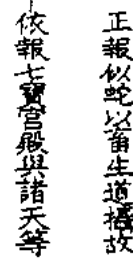 正報似蛇以畜生道攝故
依報七寶宮殿與諸天等